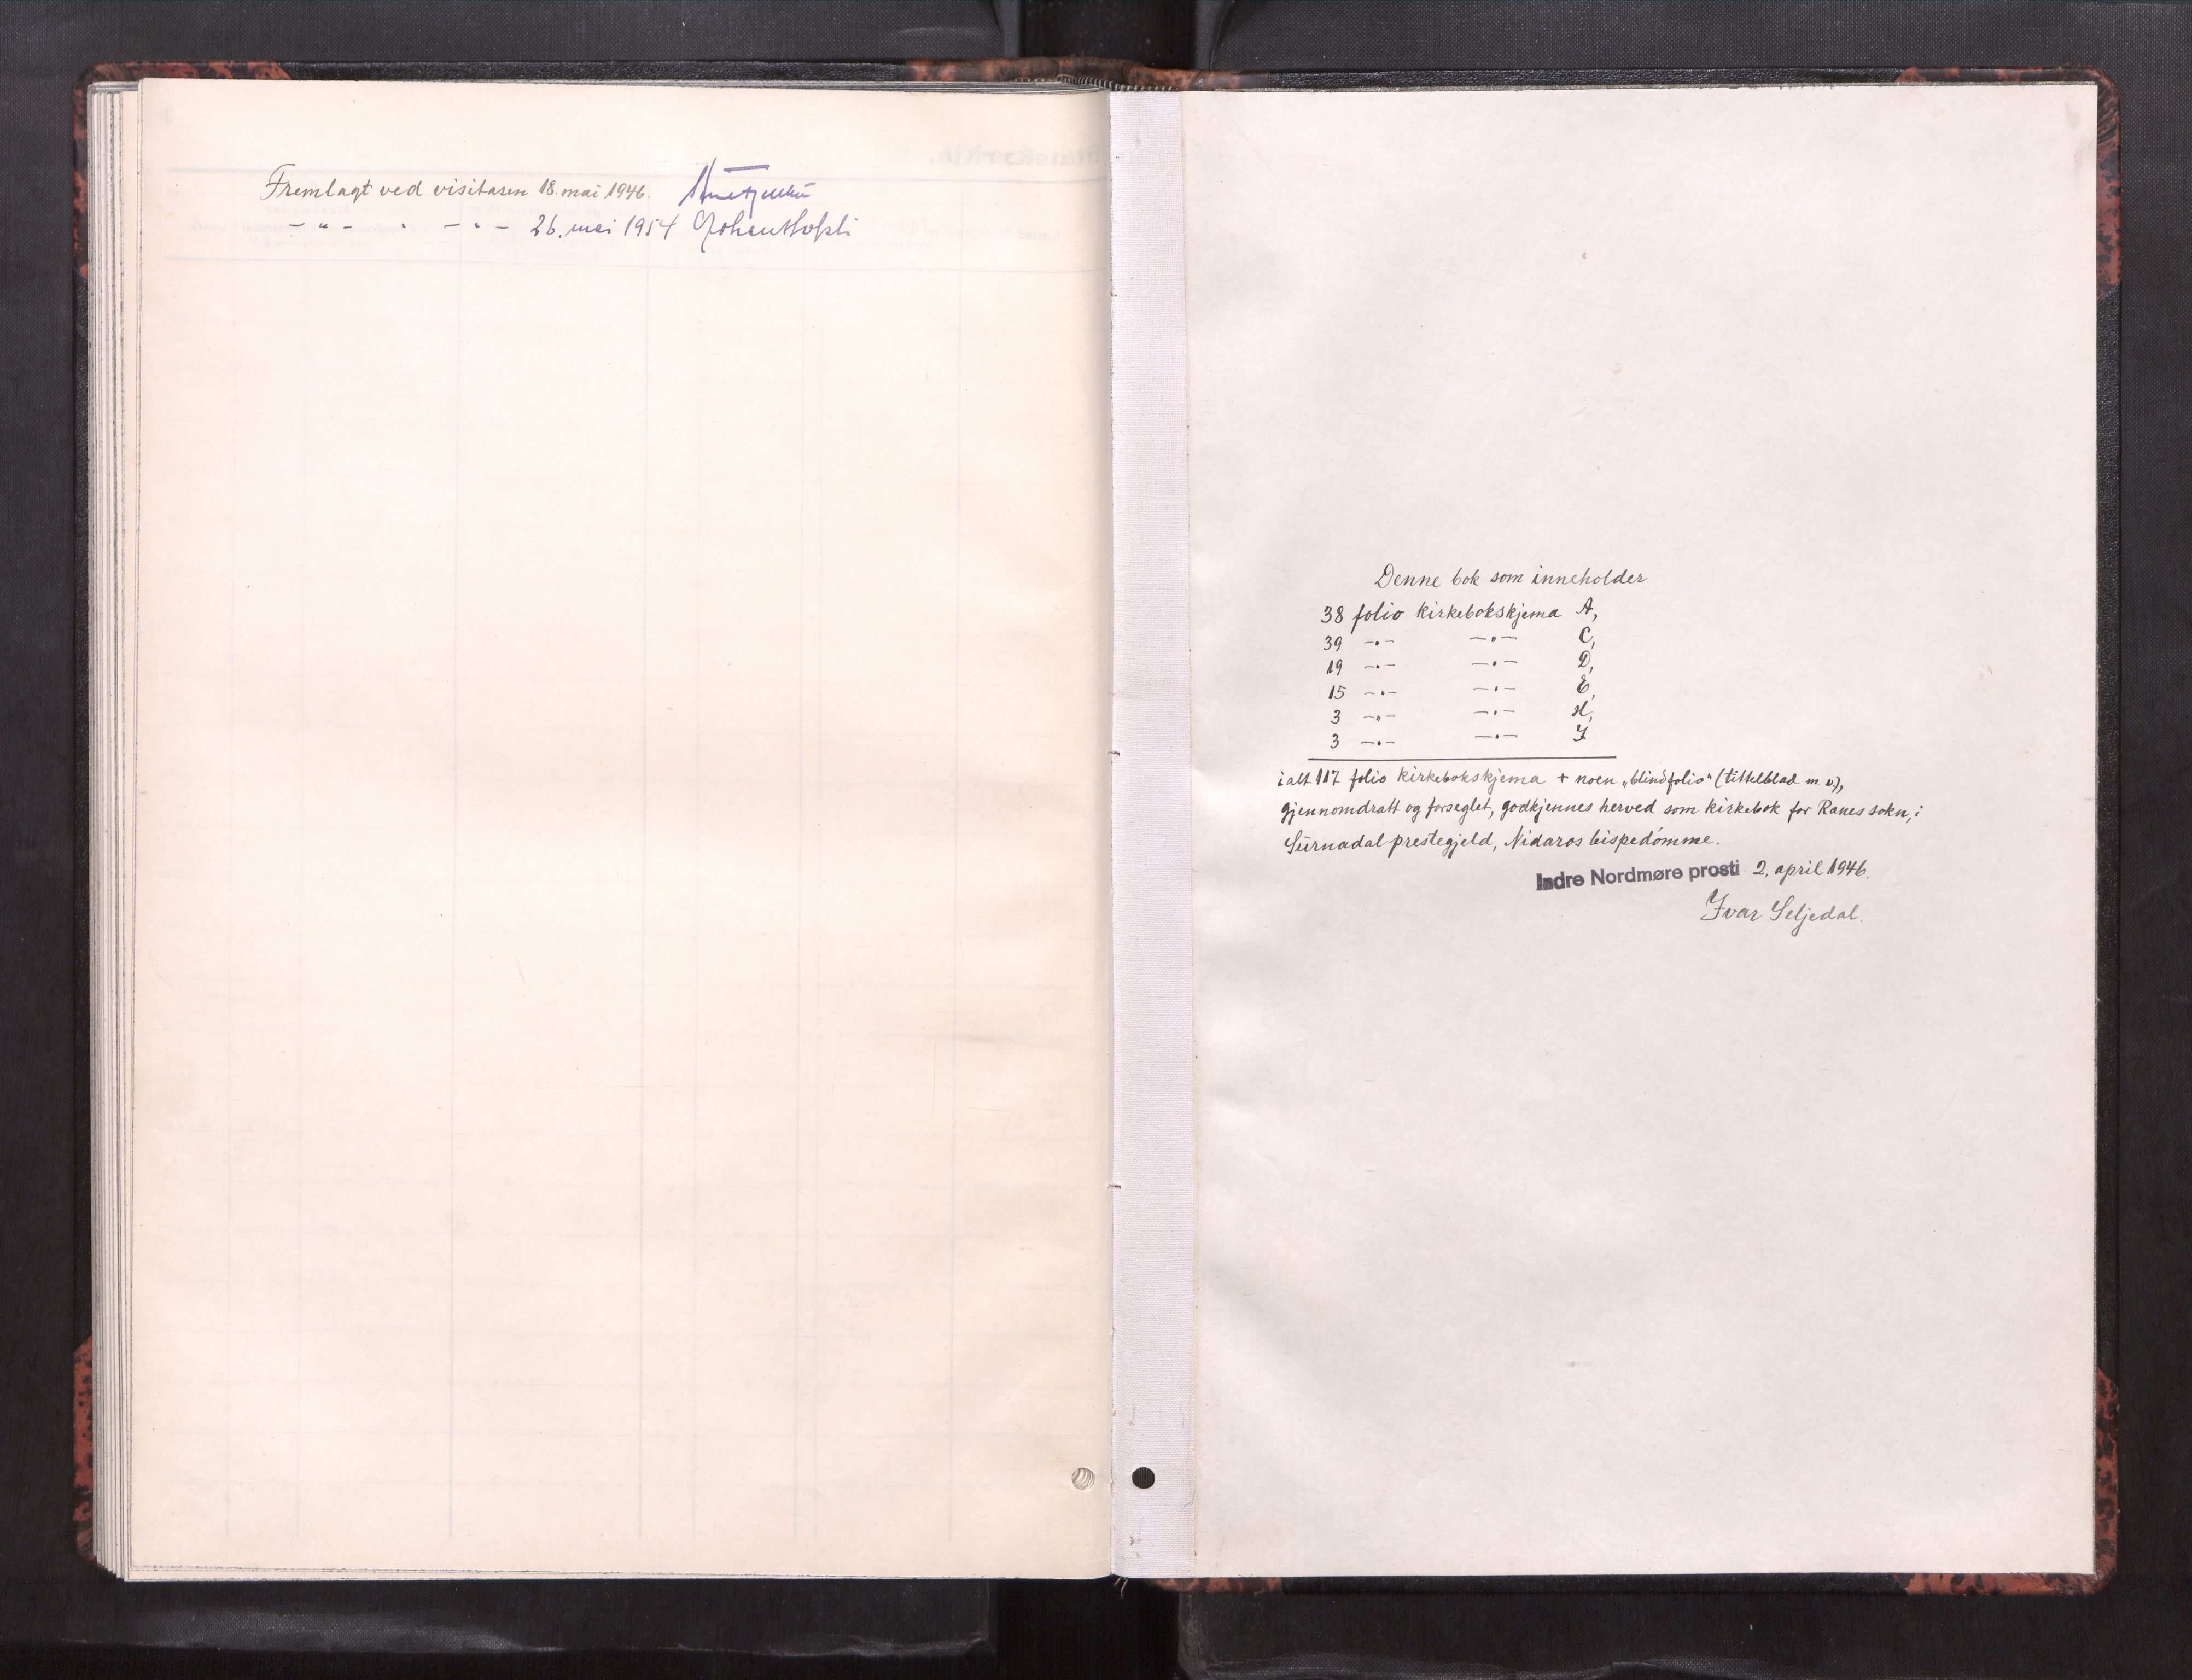 Fremlagt ved visitasen 18. mai 1946.
— " — " — " — 26. mai 1954
Denne bok som inneholder
38 folio kirkebokskjema A,
39 —"— —"— C,
19 —"— —"— D,
15 —"— —"— E,
3 —"— —"— H,
3 —"— —"— I
i alt 117 folio kirkebokskjema + noen „blindfolio" (tittelblad m v),
gjennomdratt og forseglet, godkjennes herved som kirkebok for Ranes sokn, i
Surnadal prestegjeld, Nidaros bispedømme.
Indre Nordmøre prosti 2. april 1946.
Ivar Seljedal.